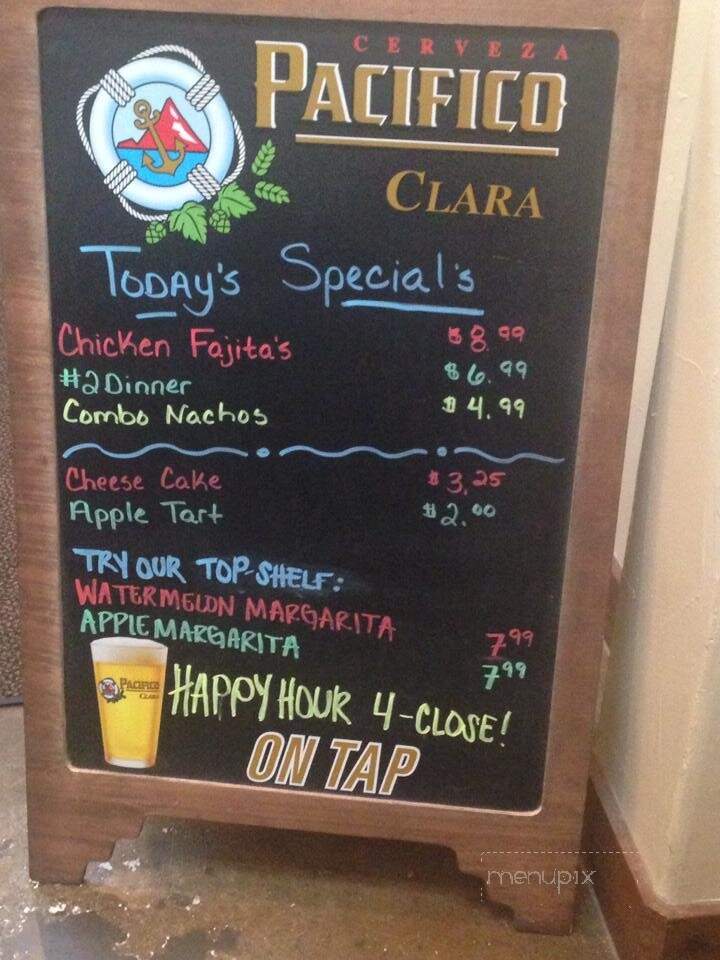 CERVEZA
PACIFICO
CLARA
TODAY's Special's
Chicken Fajita's $8.99
#2 Dinner $6.99
Combo Nachos $4.99
Cheese Cake $3.25
Apple Tart $2.00
TRY OUR TOP-SHELF:
WATERMELON MARGARITA 7.99
APPLE MARGARITA 7.99
PACIFICO
CLARA
HAPPY HOUR 4-CLOSE!
ON TAP
menupix